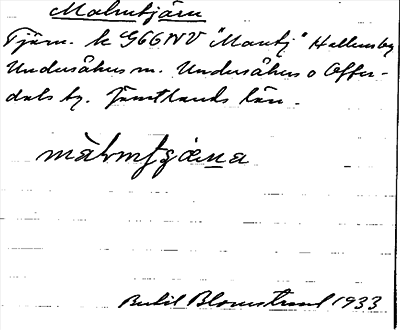 Malmtjärn
Tjärn. k G66NV "Mantj" Hallens by
Undersåkers sn. Undersåkers o Offer-
dals tg. Jämtlands län.
màlmtjæna
Bertil Blomstrand 1933